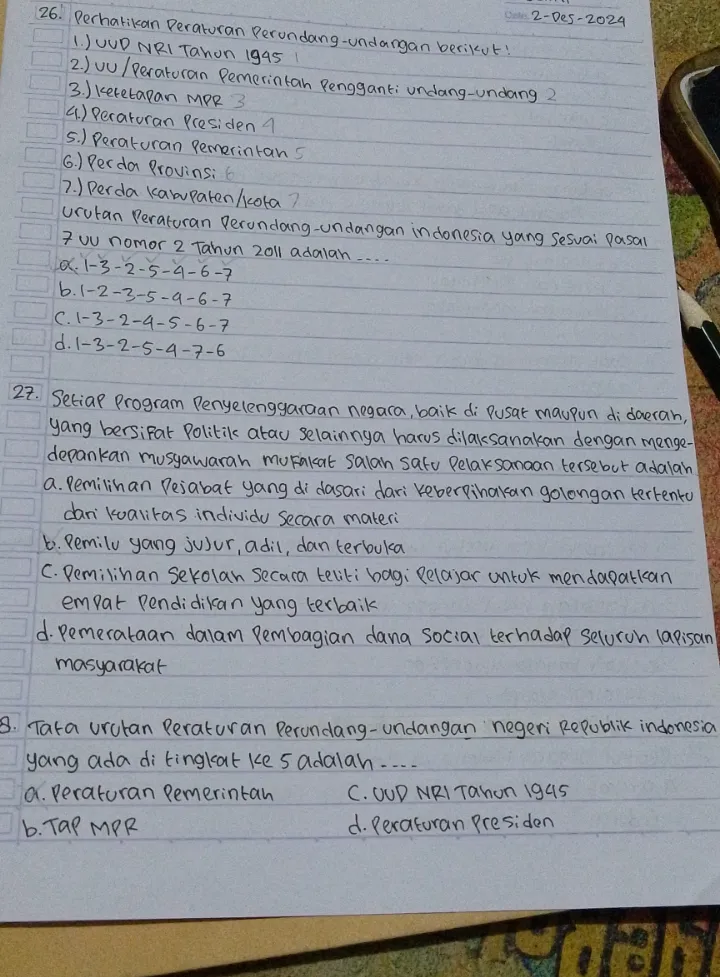 2-Des-2024
26. Perhatikan Peraturan Perundang-undangan berikut!
1.) UUD NRI Tahun 1945 1
2.) UU/Peraturan Pemerintah Pengganti undang-undang 2
3.) Ketetapan MPR 3
4.) Peraturan Presiden 4
5.) Peraturan Pemerintah 5
6.) Perda Provinsi 6
7.) Perda Kabupaten/kota 7
Urutan Peraturan Perundang-undangan indonesia yang sesuai pasal
7 UU nomor 2 Tahun 2011 adalah ....
a. 1-3-2-5-4-6-7
b. 1-2-3-5-4-6-7
C. 1-3-2-4-5-6-7
d. 1-3-2-5-4-7-6
27. Setiap Program Penyelenggaraan negara, baik di Pusat maupun di daerah,
yang bersifat Politik atau selainnya harus dilaksanakan dengan menge-
depankan musyawarah mufakat salah satu Pelaksanaan tersebut adalah
a. Pemilihan Pejabat yang di dasari dari keberpihakan golongan tertentu
dari kualitas individu secara materi
b. Pemilu yang jujur, adil, dan terbuka
C. Pemilihan Sekolah secara teliti bagi Pelajar untuk mendapatkan
empat Pendidikan yang terbaik
d. Pemerataan dalam Pembagian dana social terhadap seluruh lapisan
masyarakat
8. Tata urutan Peraturan Perundang-undangan negeri Republik indonesia
yang ada di tingkat ke 5 adalah ....
a. Peraturan Pemerintah C. UUD NRI Tahun 1945
b. TAP MPR d. Peraturan Presiden